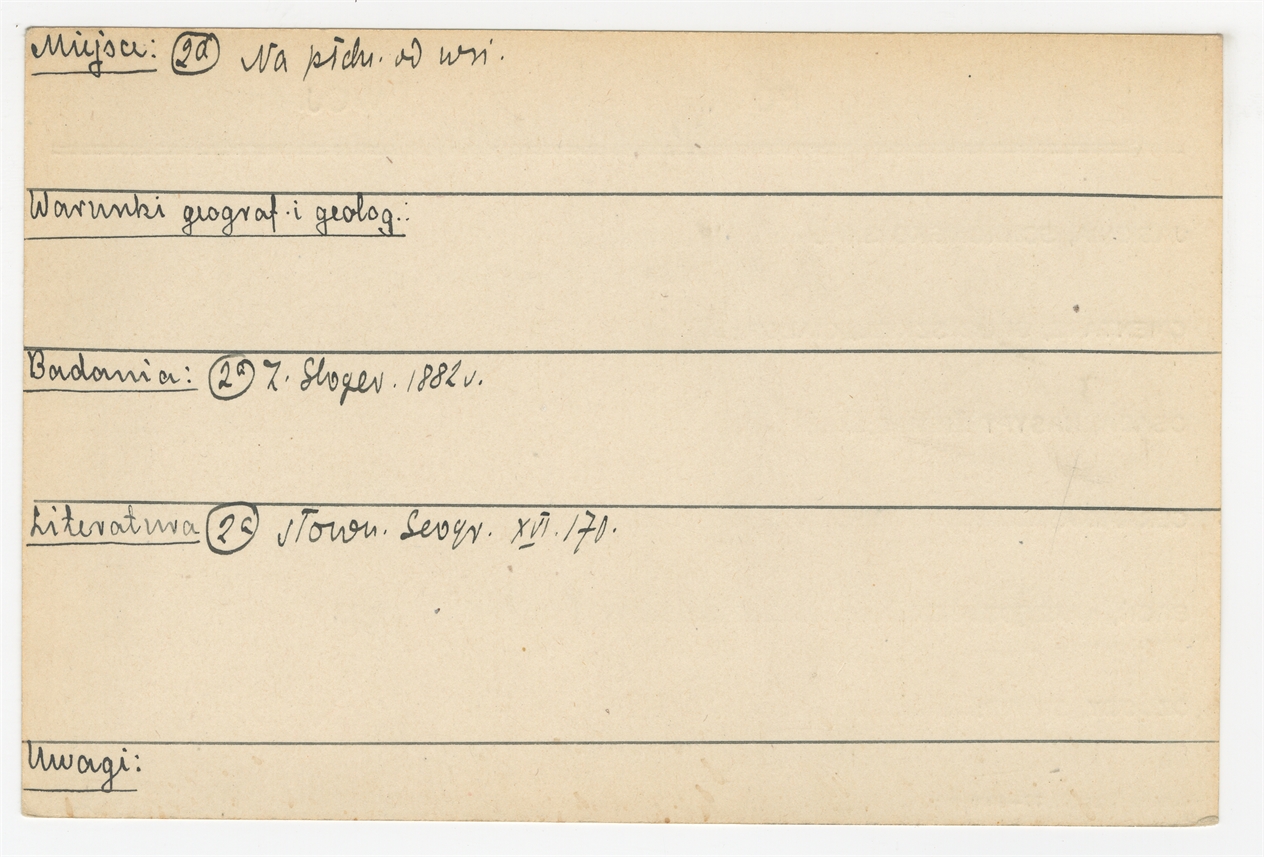 Miejsce: 2a Na płdn. od wsi.
Warunki geograf. i geolog.:
Badania: 2a Z. Gloger. 1882 r.
Literatura 2a Słown. Geogr. XVI. 170.
Uwagi: